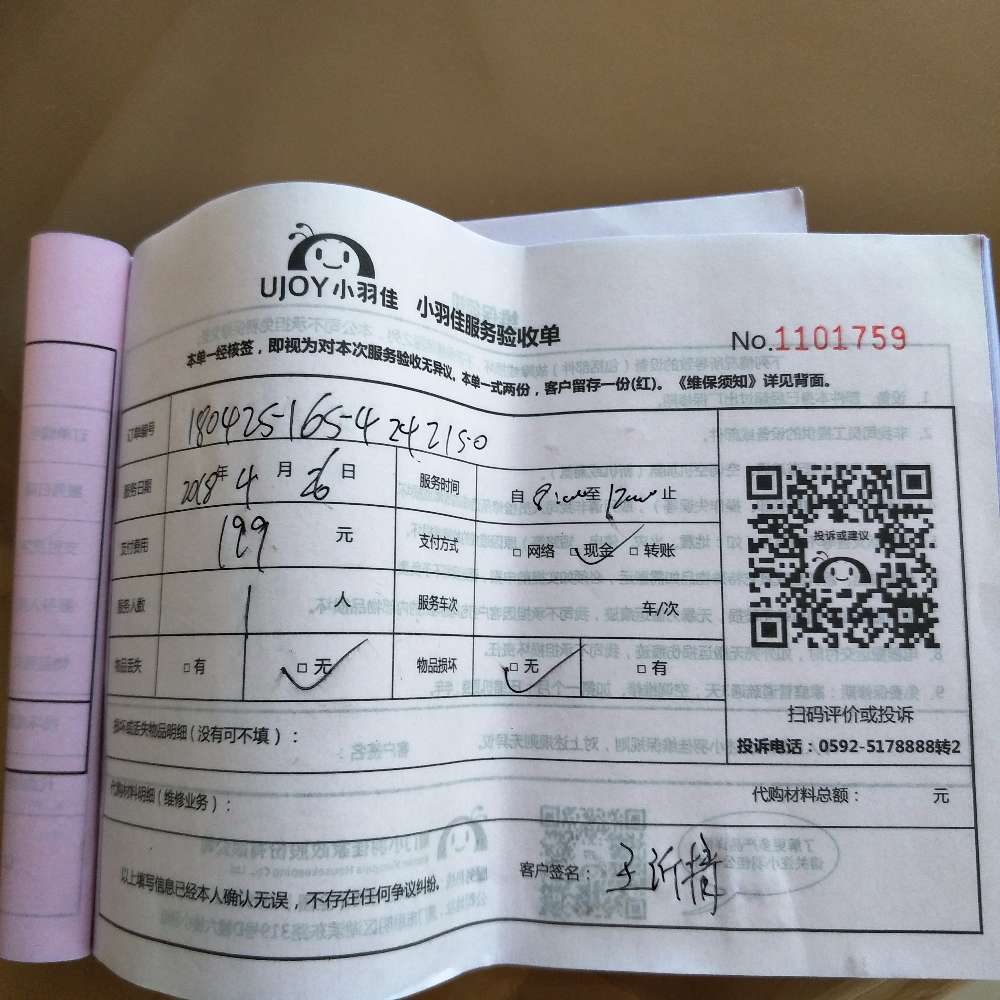 UJOY小羽佳 小羽佳服务验收单
No.1101759
本单一经核签，即视为对本次服务验收无异议。本单一式两份，客户留存一份(红)。《维保须知》详见背面。
订单编号 180425-165-4242150
服务日期 2018年 4 月 26 日 服务时间 自 8:00 至 12:00 止
支付费用 199 元 支付方式 □网络 □现金 □转账
服务人数 1 人 服务车次 车/次
物品丢失 □有 □无 物品损坏 □无 □有
投诉或建议
扫码评价或投诉
投诉电话：0592-5178888转2
损坏或丢失物品明细（没有可不填）：
代购材料明细（维修业务）： 代购材料总额： 元
以上填写信息已经本人确认无误，不存在任何争议纠纷。 客户签名：王沂